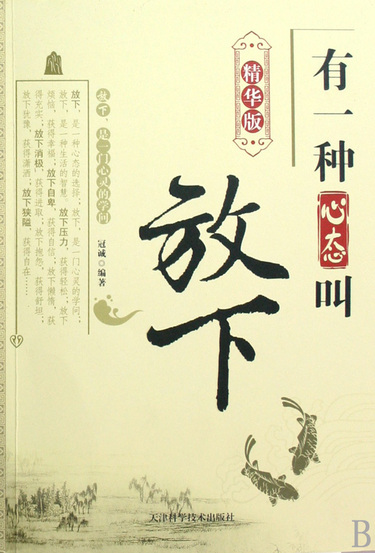 有一种心态叫
放下
精华版
放下,是一门心灵的学问
冠诚 编著
放下,是一种心态的选择;放下,是一门心灵的学问;
放下,是一种生活的智慧。放下压力,获得轻松;放下
烦恼,获得幸福;放下自卑,获得自信;放下懒惰,获
得充实;放下消极,获得进取;放下抱怨,获得舒坦;
放下犹豫,获得潇洒;放下狭隘,获得自在……
天津科学技术出版社
B